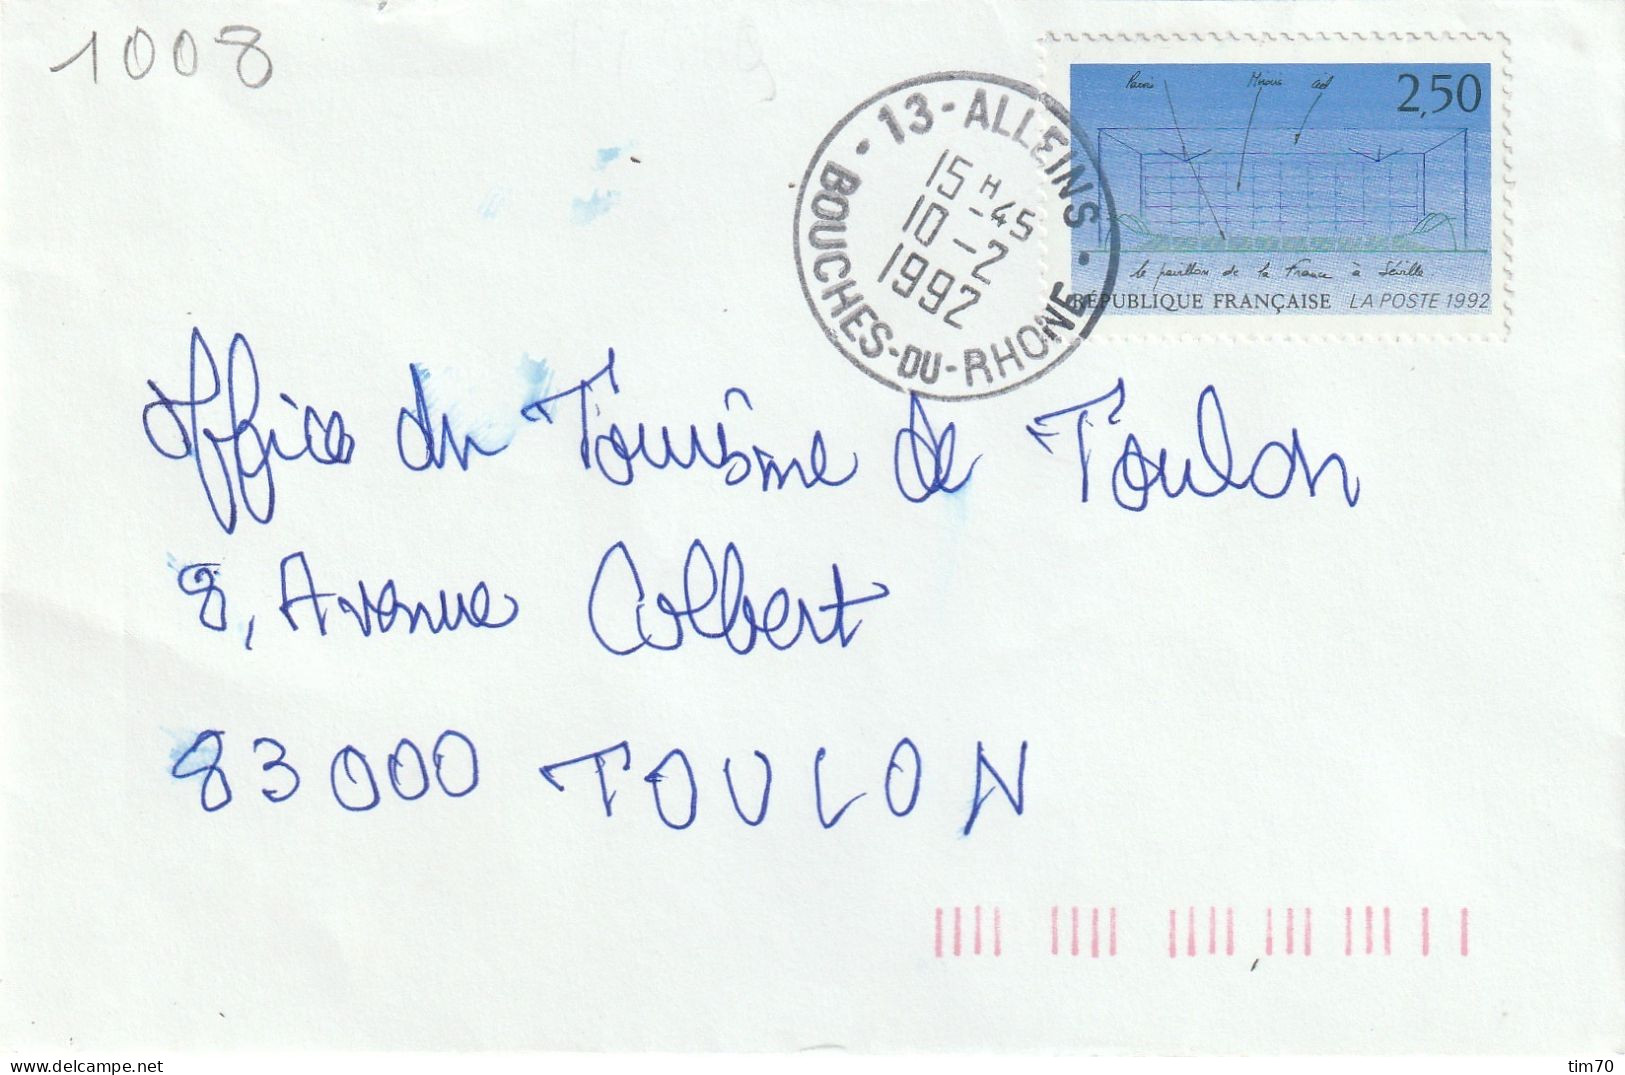 1008
13 - ALLEINS
15 H 45
10 - 2
1992
BOUCHES-DU-RHONE
2,50
Parvis
Miroir
ciel
le pavillon de la France à Séville
RÉPUBLIQUE FRANÇAISE LA POSTE 1992
Office du Tourisme de Toulon
8, Avenue Colbert
83000 TOULON
tim70